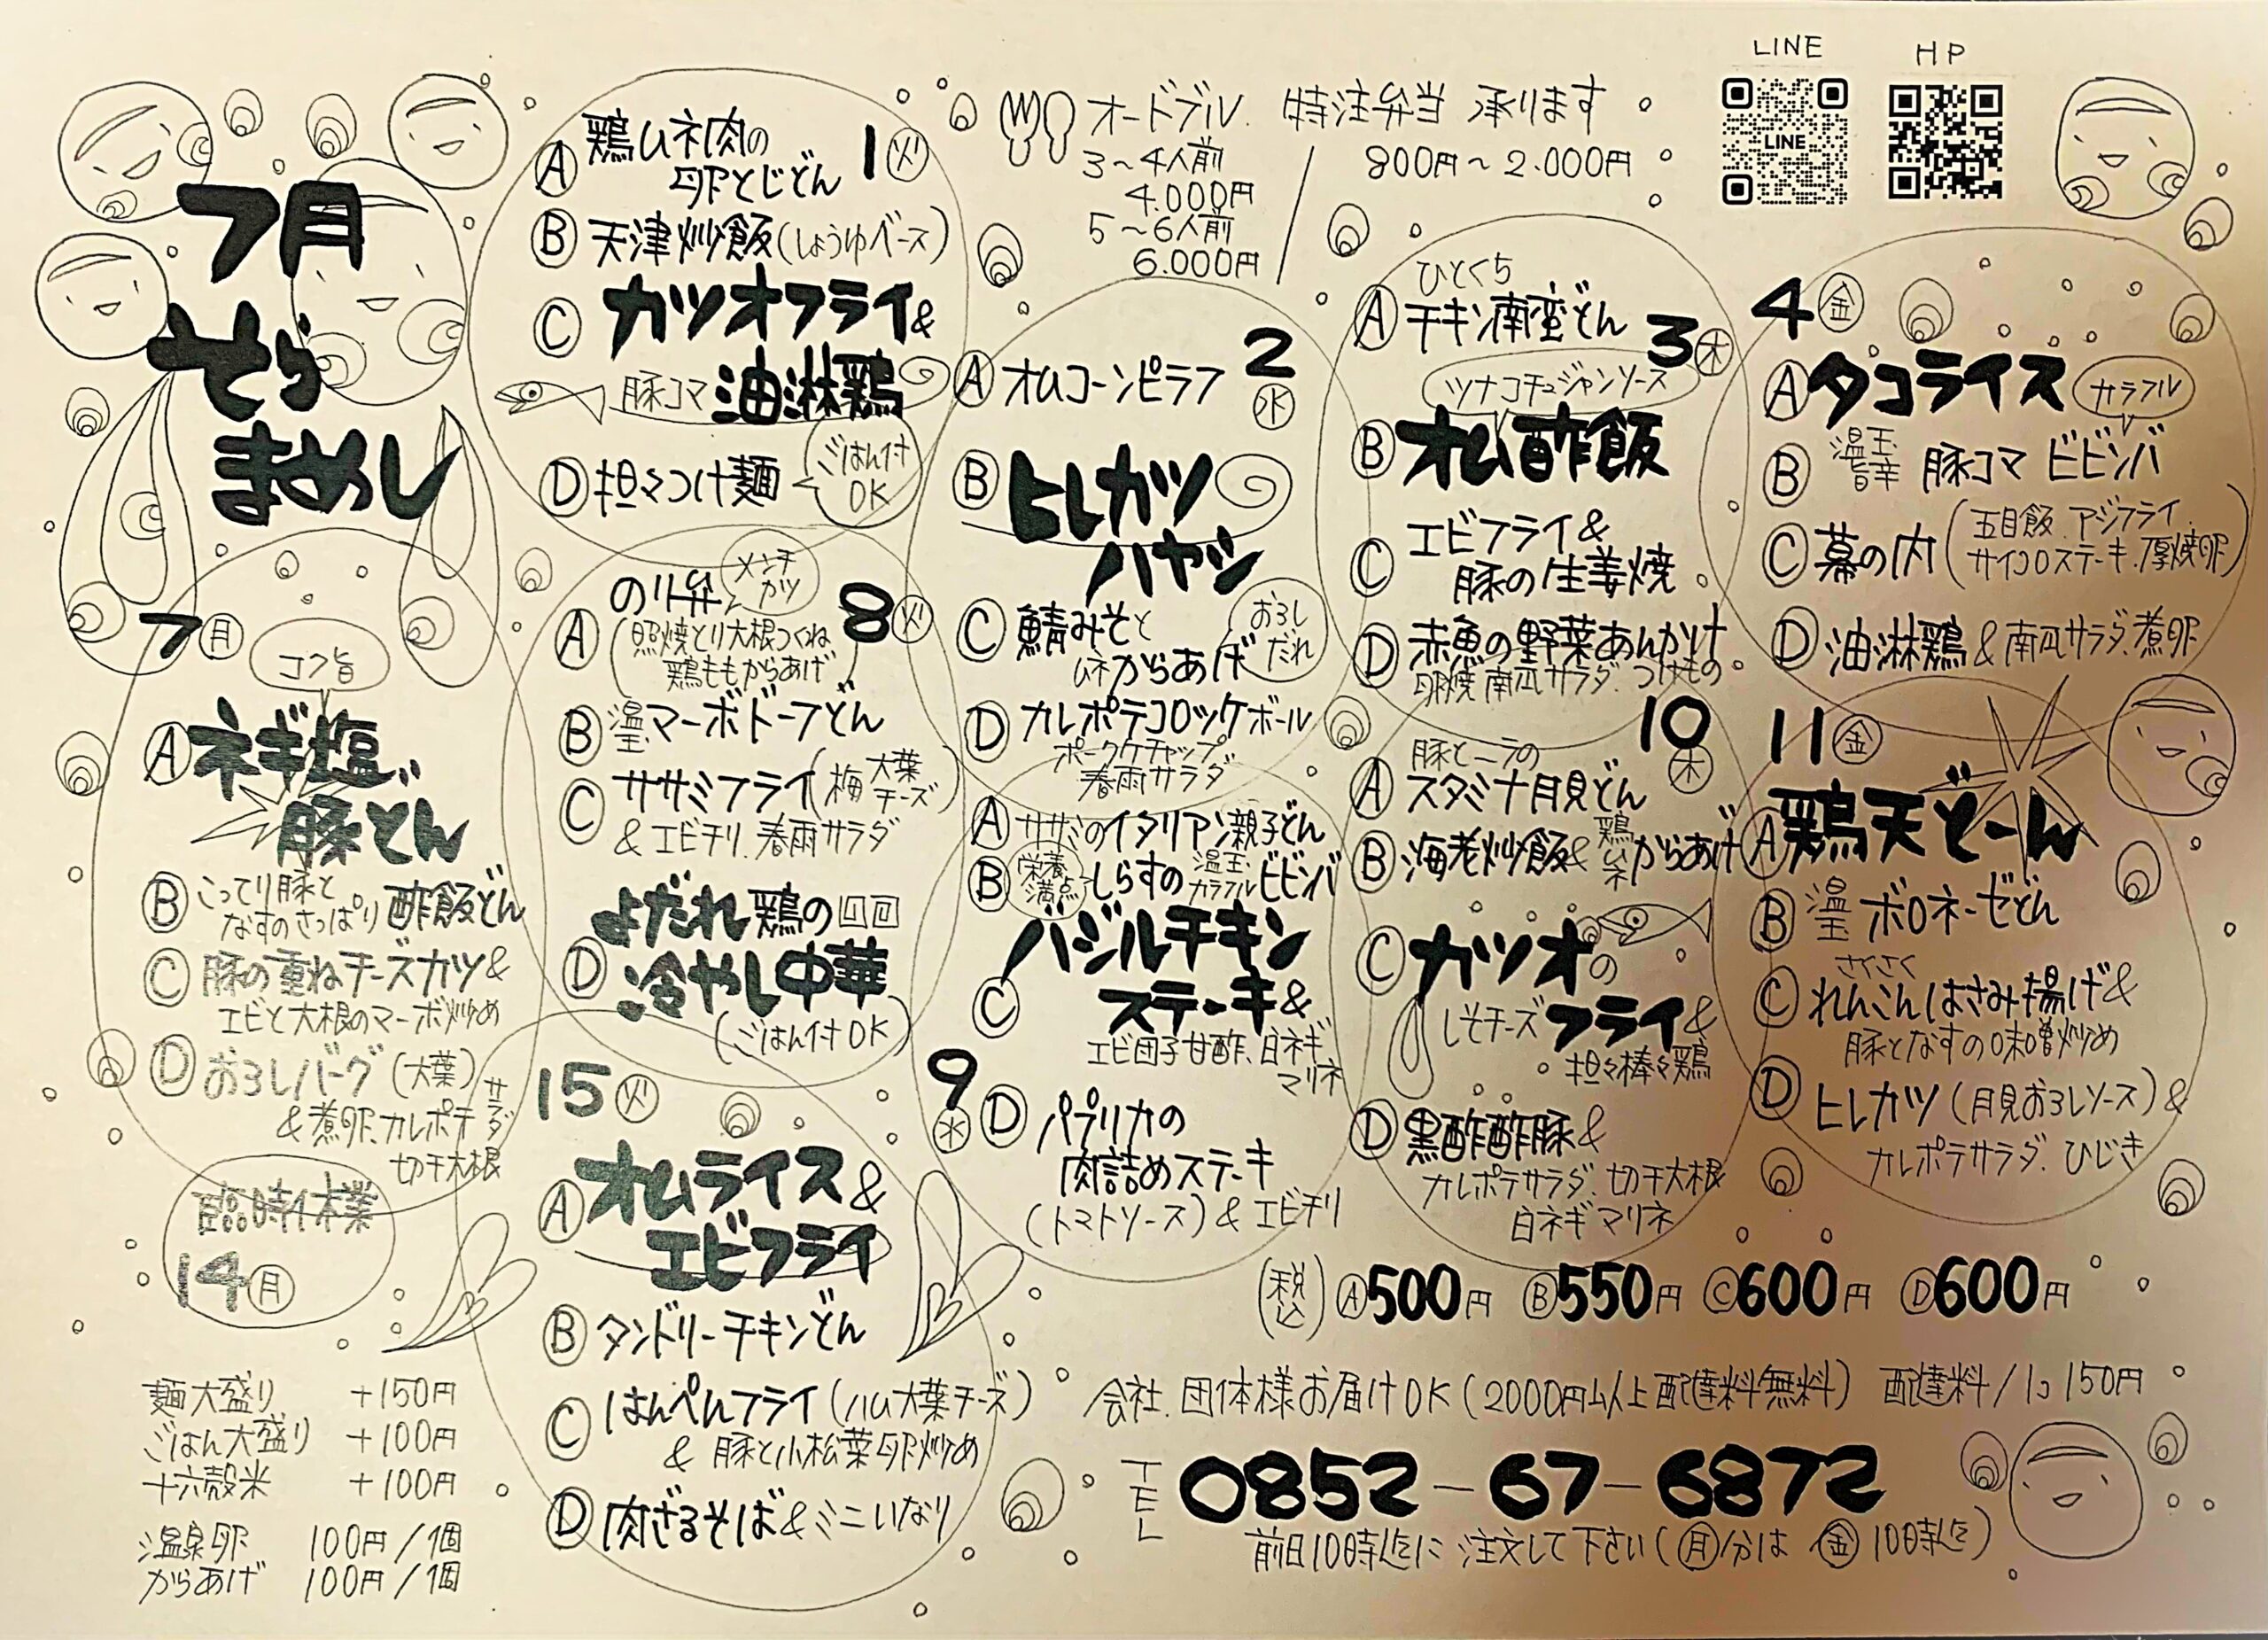 7月
そら
まめし
LINE
HP
LINE
オードブル. 特注弁当 承ります
3〜4人前
4.000円
5〜6人前
6.000円
800円〜2.000円
1 火
A 鶏ムネ肉の
卵とじどん
B 天津炒飯(しょうゆベース)
C カツオフライ&
豚コマ 油淋鶏
D 担々つけ麺
ごはん付
OK
2 水
A オムコーンピラフ
B ヒレカツ
ハヤシ
C 鯖みそと
ムネからあげ
おろし
だれ
D カレポテコロッケボール
ポークケチャップ
春雨サラダ
3 木
ひとくち
A チキン南蛮どん
ツナコチュジャンソース
B オム酢飯
C エビフライ&
豚の生姜焼
D 赤魚の野菜あんかけ
卵焼 南瓜サラダ. つけもの
4 金
A タコライス
カラフル
B 温玉
旨辛 豚コマ ビビンバ
C 幕の内 (五目飯. アジフライ.
サイコロステーキ. 厚焼卵)
D 油淋鶏 & 南瓜サラダ. 煮卵
7 月
コク旨
A ネギ塩
豚どん
B こってり豚と
なすのさっぱり 酢飯どん
C 豚の重ねチーズカツ&
エビと大根のマーボ炒め
D おろしバーグ (大葉)
& 煮卵. カレポテサラダ
切干大根
8 火
A のり弁
メンチ
カツ
(照焼とり大根つくね
鶏ももからあげ)
B 温玉 マーボドーフどん
C ササミフライ(梅 大葉
チーズ)
& エビチリ. 春雨サラダ
D よだれ鶏の
冷やし中華
(ごはん付OK)
9 水
A ササミのイタリアン親子どん
B 栄養
満点 しらすの 温玉
カラフル ビビンバ
C バジルチキン
ステーキ&
エビ団子甘酢. 白ネギ
マリネ
D パプリカの
肉詰めステーキ
(トマトソース) & エビチリ
10 木
豚とニラの
A スタミナ月見どん
B 海老炒飯& 鶏ムネ からあげ
C カツオの
しそチーズ フライ&
担々棒々鶏
D 黒酢酢豚&
カレポテサラダ. 切干大根
白ネギマリネ
11 金
A 鶏天どーん
B 温玉 ボロネーゼどん
さくさく
C れんこんはさみ揚げ&
豚となすの味噌炒め
D ヒレカツ (月見おろしソース) &
カレポテサラダ. ひじき
臨時休業
14 月
15 火
A オムライス&
エビフライ
B タンドリーチキンどん
C はんぺんフライ(ハム大葉チーズ)
& 豚と小松菜卵炒め
D 肉ざるそば & ミニいなり
(税込) A500円 B550円 C600円 D600円
麺大盛り +150円
ごはん大盛り +100円
十六穀米 +100円
温泉卵 100円/1個
からあげ 100円/1個
会社. 団体様お届けOK(2000円以上配達料無料) 配達料/1コ150円
TEL 0852-67-6872
前日10時迄に注文して下さい(月分は 金 10時迄)